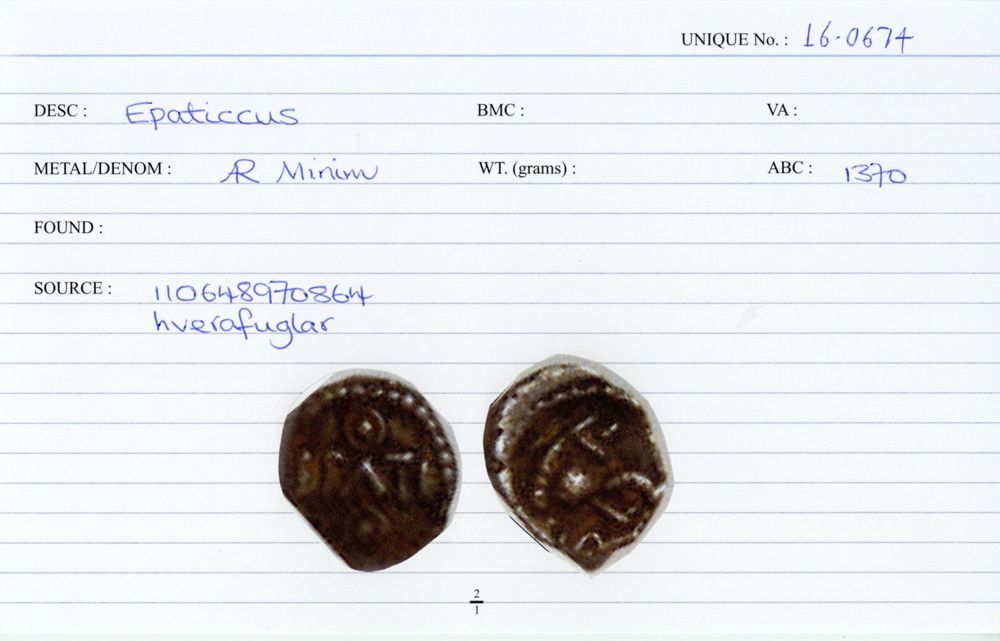 UNIQUE No. : 16.0674
DESC : Epaticcus BMC : VA :
METAL/DENOM : AR Minim WT. (grams) : ABC : 1370
FOUND :
SOURCE : 110648970864
hverafuglar
2
1